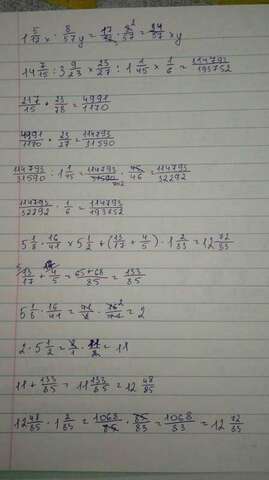 1 5/12 x · 8/57 y = 17/12 · 8/57 = 34/57 xy
14 7/15 : 3 9/23 × 23/27 : 1 1/45 × 1/6 = 114793/193752
217/15 × 23/78 = 4991/1170
4991/1170 · 23/27 = 114793/31590
114793/31590 : 1 1/45 = 114793/31590 · 45/46 = 114793/32292
114793/32292 · 1/6 = 114793/193752
5 1/8 · 16/41 × 5 1/2 + (13/17 + 4/5) · 1 2/83 = 12 72/83
13/17 + 4/5 = 65+68/85 = 133/85
5 1/8 · 16/41 = 41/8 · 16/41 = 2
2 · 5 1/2 = 2/1 · 11/2 = 11
11 + 133/85 = 11 133/85 = 12 48/85
12 48/85 · 1 2/83 = 1068/85 · 85/83 = 1068/83 = 12 72/83